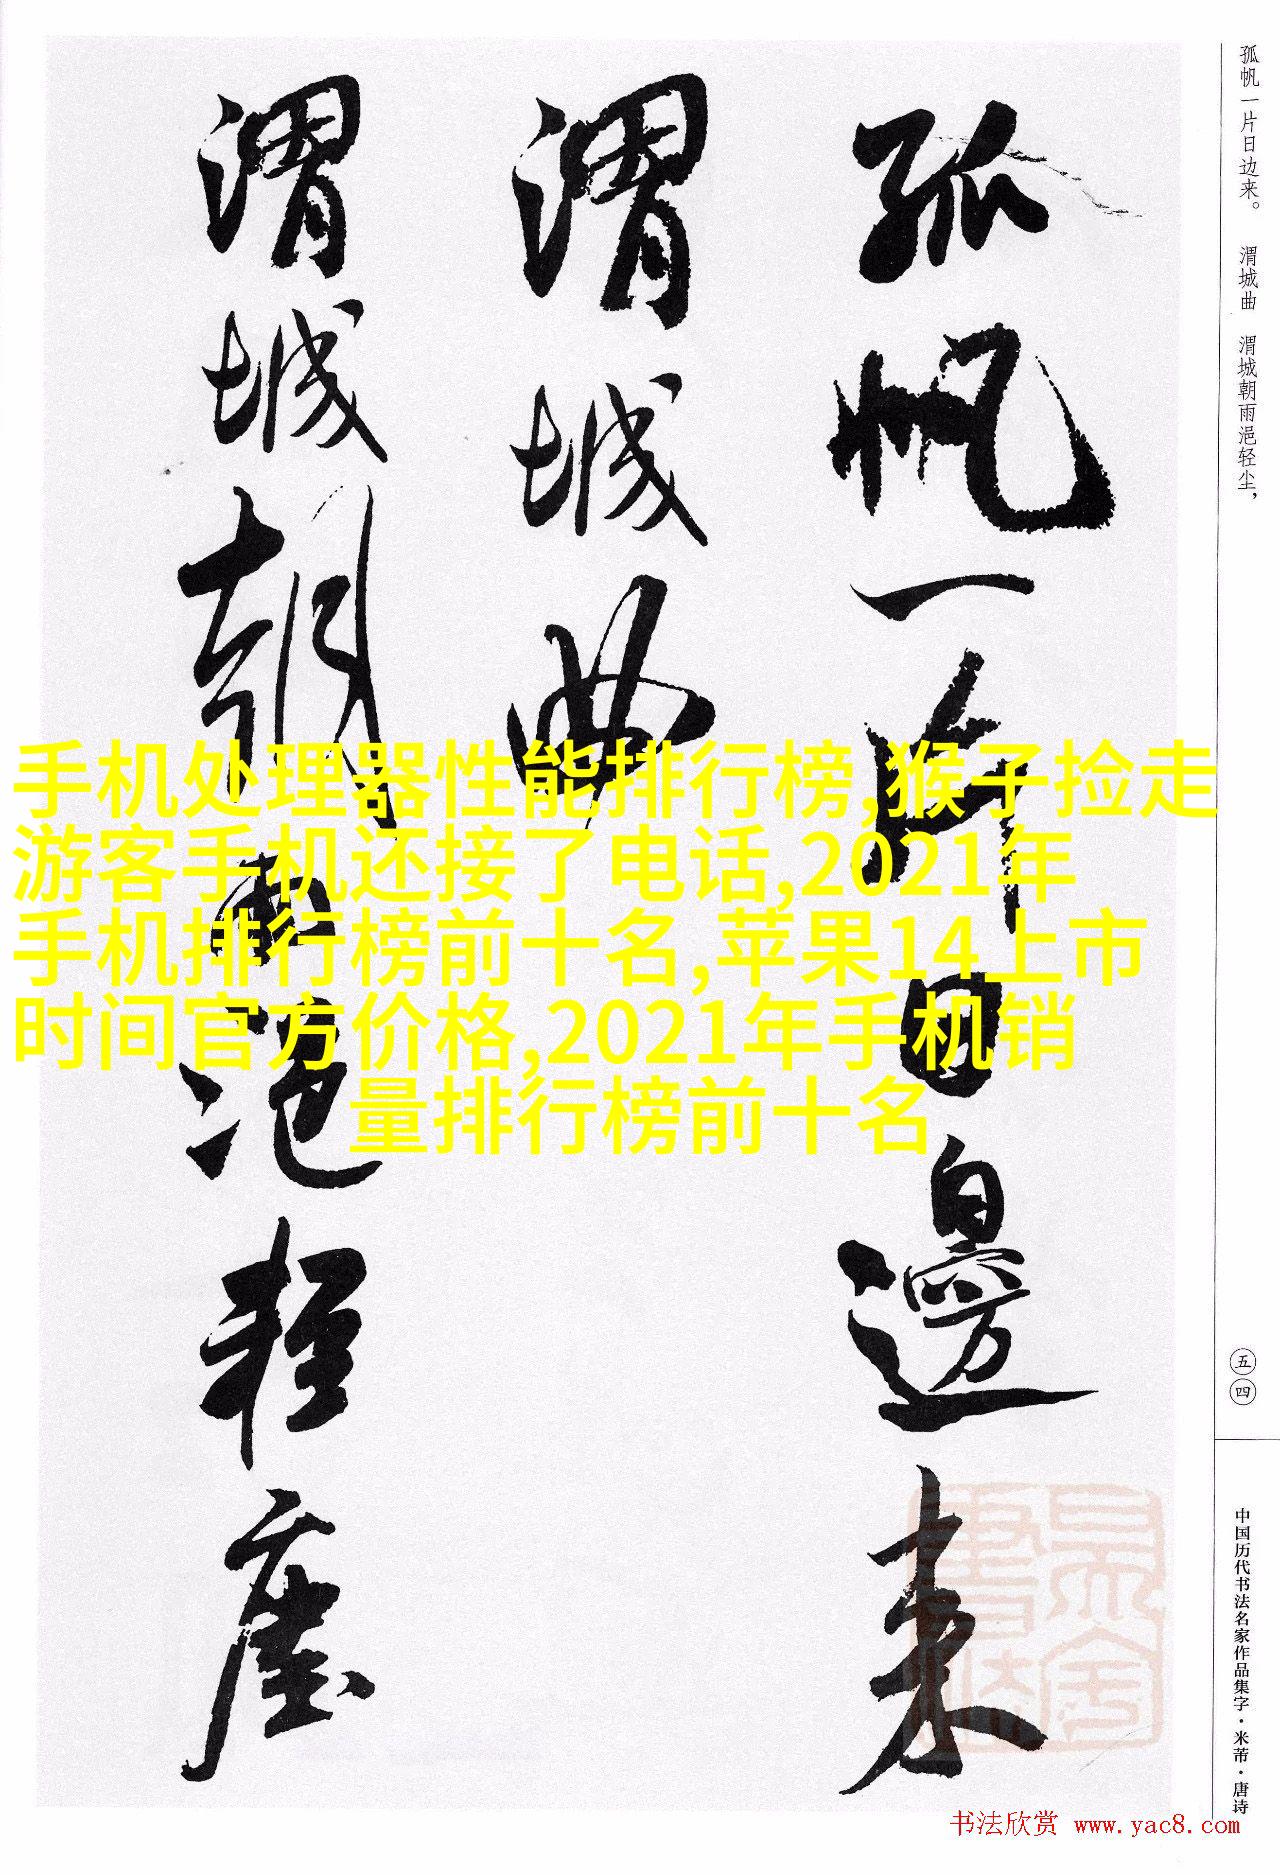 孤帆一片日邊来
渭城曲
渭城朝雨浥軽塵
孤帆一片日边来。 渭城曲 渭城朝雨浥轻尘，
五四
中国历代书法名家作品集字·米芾·唐诗
手机处理器性能排行榜,猴子捡走
游客手机还接了电话,2021年
手机排行榜前十名,苹果14上市
时间官方价格,2021年手机销
量排行榜前十名
书法欣赏 www.yac8.com